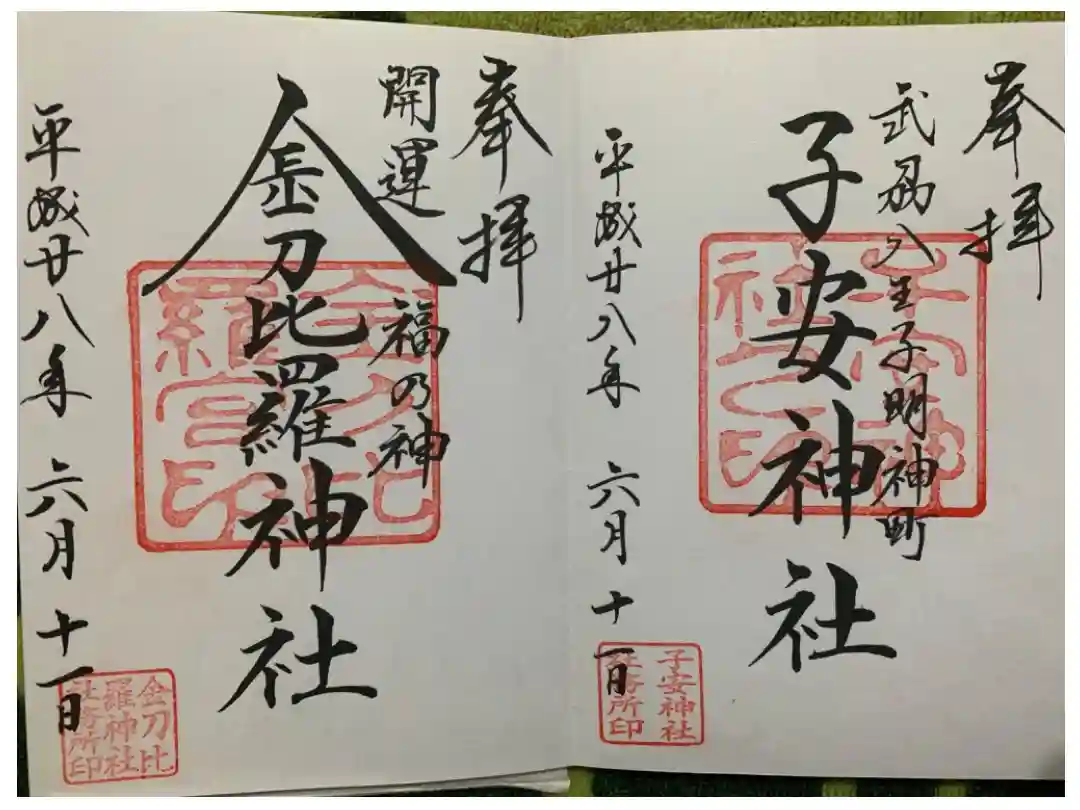 奉拝
武州八王子明神町
子安神社
子安神社
社務所印
平成廿八年 六月 十一日
奉拝
開運
福の神
金刀比羅神社
金刀比
羅神社
社務所印
平成廿八年 六月 十一日